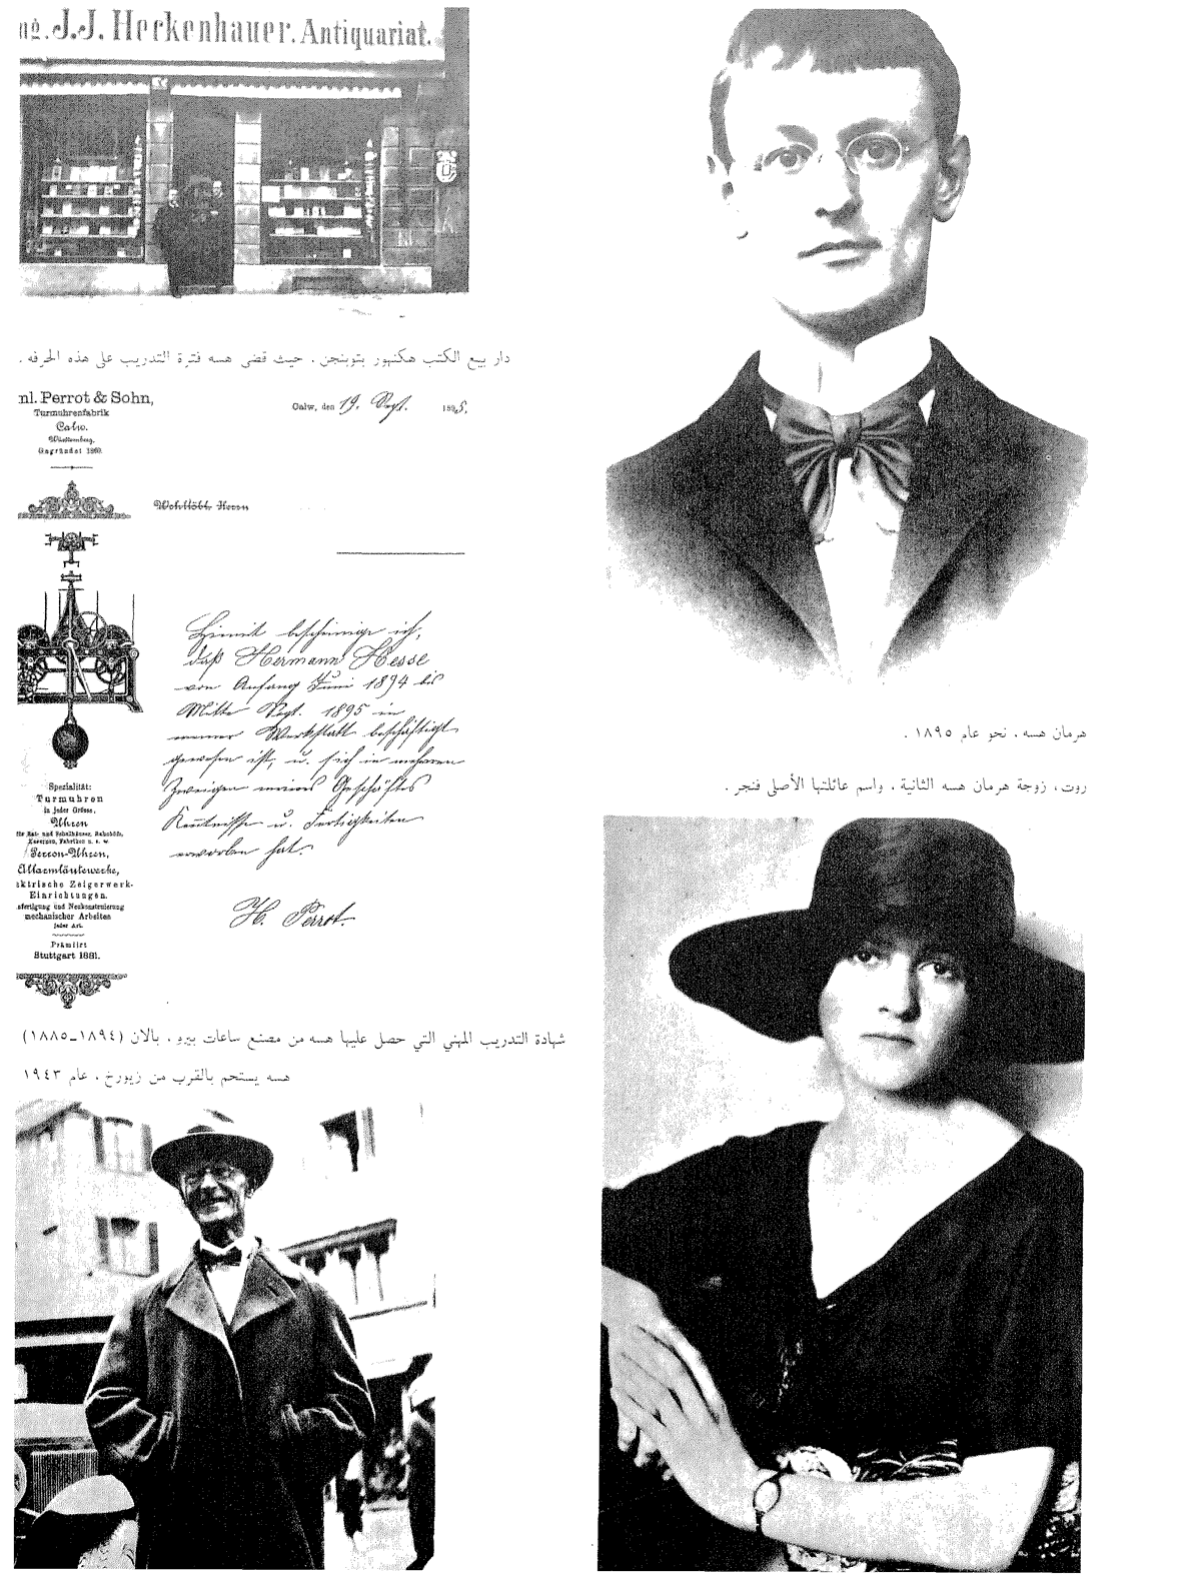 ng. J.J. Heckenhauer. Antiquariat.
دار بيع الكتب هكنهور بتوبنجن. حيث قضى هسه فترة التدريب على هذه الحرفه.
nl. Perrot & Sohn,
Turmuhrenfabrik
Calw.
Württemberg.
Gegründet 1860.
Calw, den 19. Sept. 1895.
Wohllöbl. Herrn
Hiemit bescheinige ich,
daß Hermann Hesse
von Anfang Juni 1894 bis
Mitte Sept. 1895 in
meiner Werkstatt beschäftigt
gewesen ist, u. sich in mehreren
Zweigen meines Geschäftes
Kentnisse u. Fertigkeiten
erworben hat.
H. Perrot.
Spezialität:
Turmuhren
in jeder Grösse,
Uhren
für Rat- und Schulhäuser, Bahnhöfe,
Kasernen, Fabriken u. s. w.
Perron-Uhren,
Allarmläutewerke,
ektrische Zeigerwerk-
Einrichtungen.
nfertigung und Neukonstruierung
mechanischer Arbeiten
jeder Art.
Prämiirt
Stuttgart 1881.
شهادة التدريب المهني التي حصل عليها هسه من مصنع ساعات بيرو. بالان (١٨٩٤ـ١٨٨٥)
هسه يستحم بالقرب من زيورخ. عام ١٩٤٣
هرمان هسه. نحو عام ١٨٩٥.
روت، زوجة هرمان هسه الثانية. واسم عائلتها الأصلى فنجر.